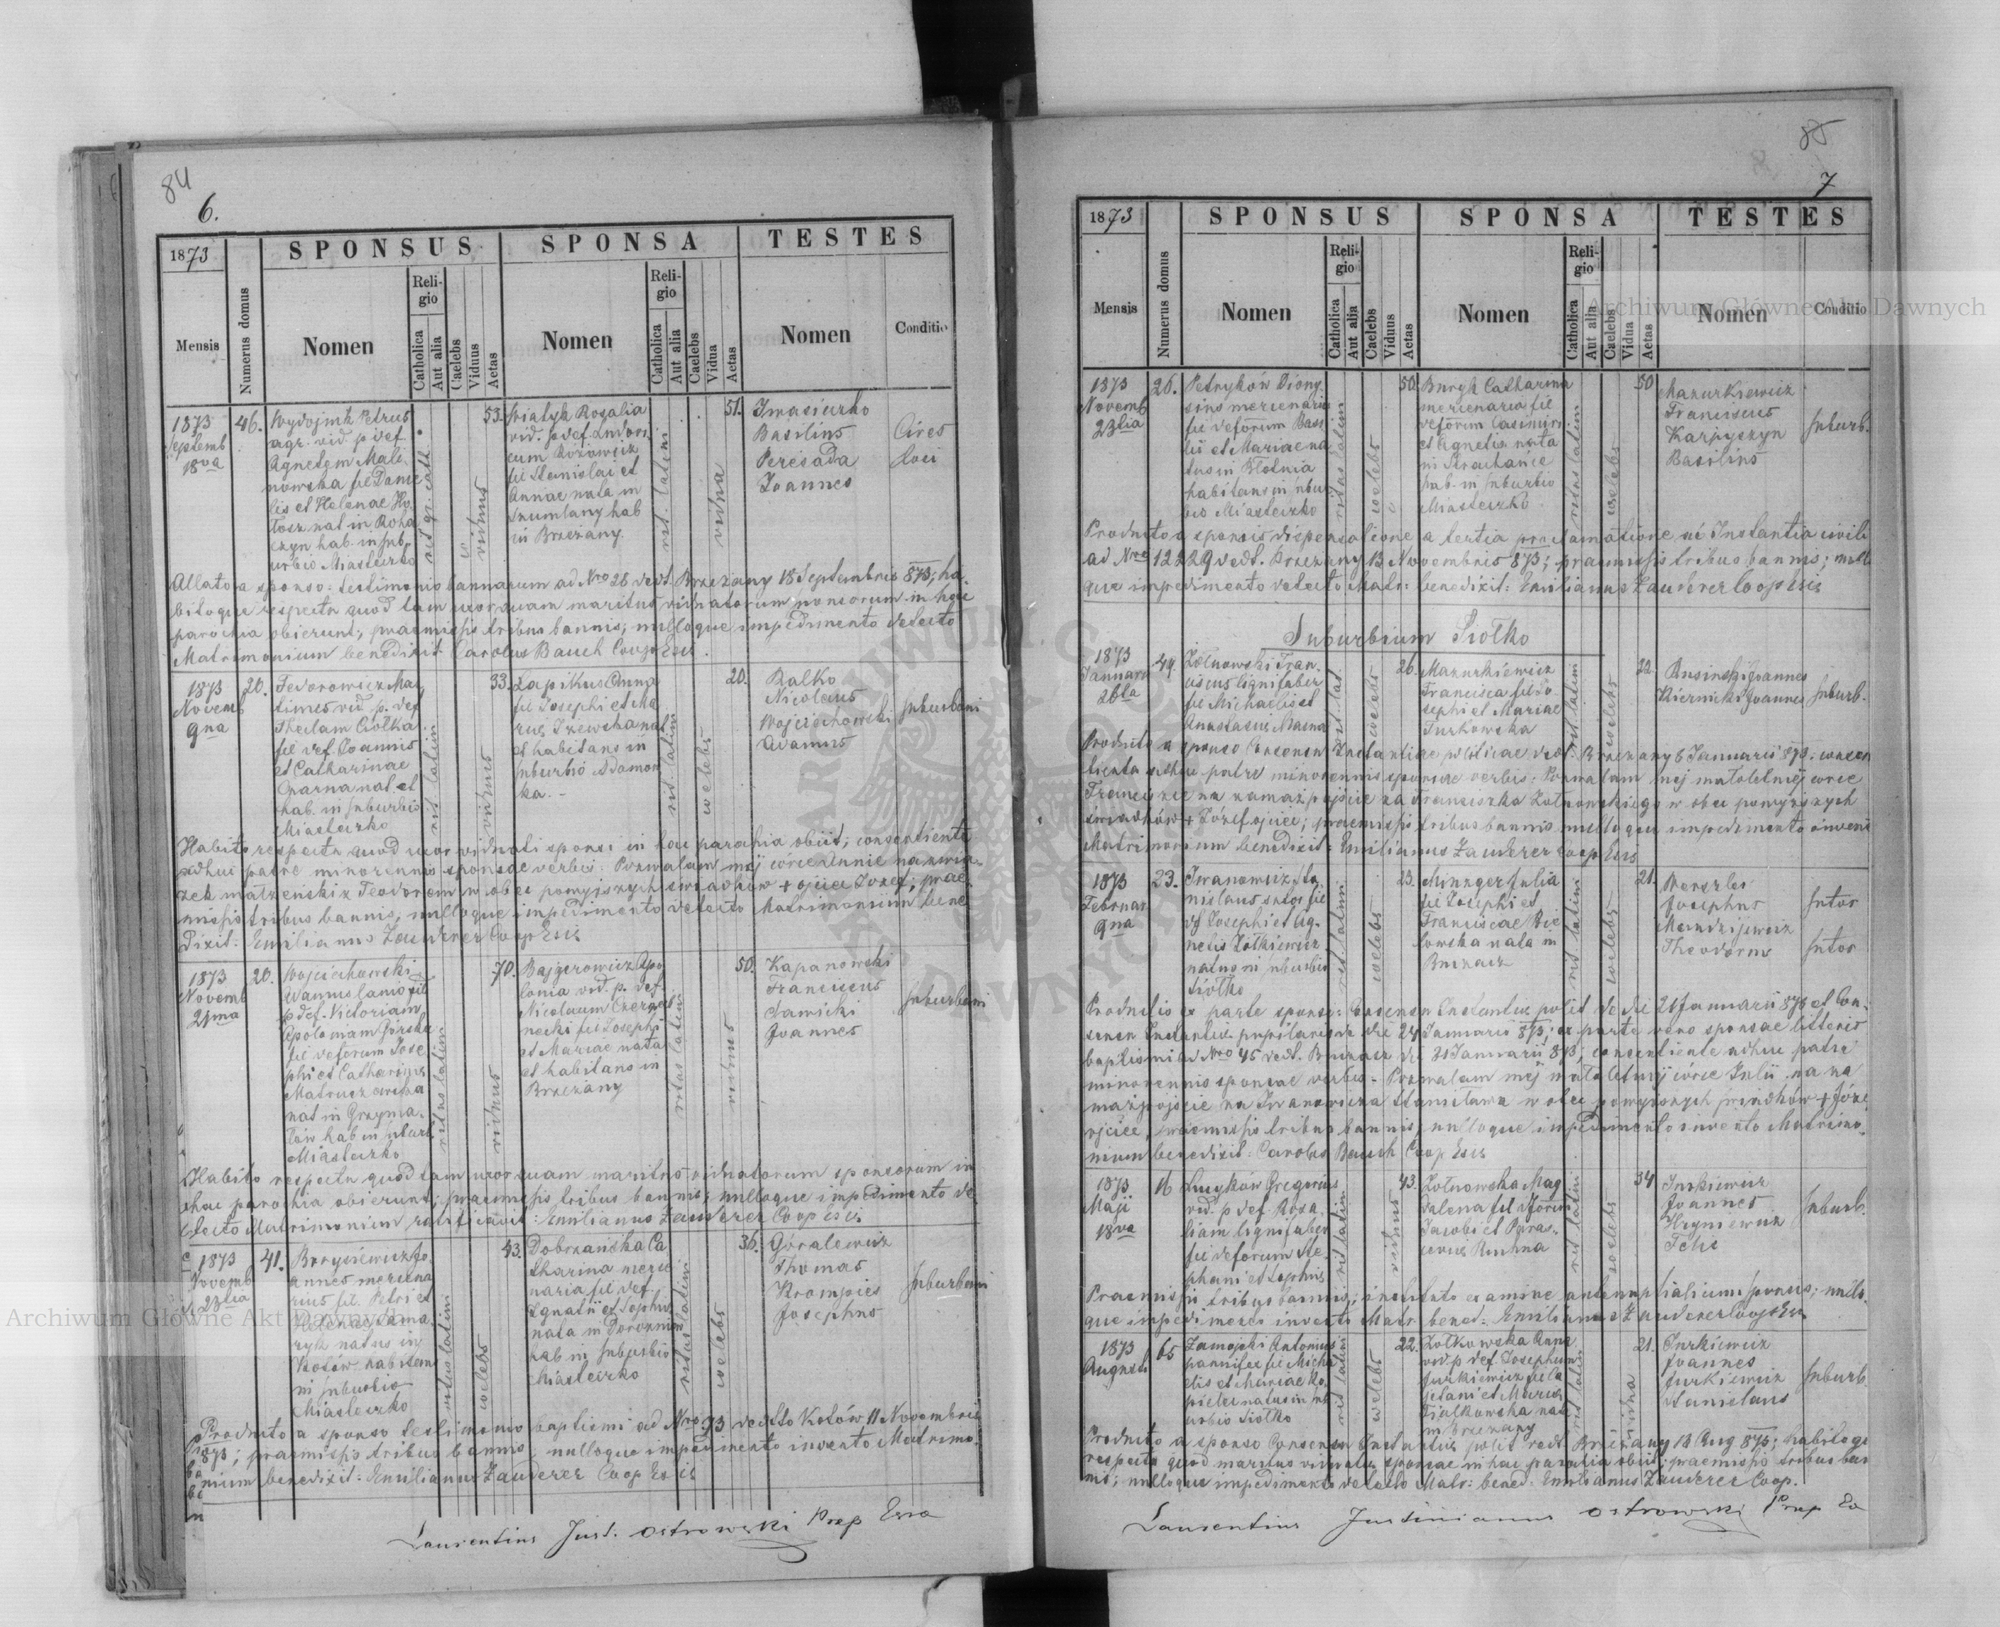 84
6.
1873
SPONSUS
SPONSA
TESTES
Mensis
Numerus domus
Nomen
Religio
Catholica
Aut alia
Caelebs
Viduus
Aetas
Nomen
Religio
Catholica
Aut alia
Caelebs
Vidua
Aetas
Nomen
Conditio
1873
Septemb
18va
46.
Wydojnik Petrus
agr. vid. p def
Agnetem Mali-
nowska fil Danie
lis et Helenae
nat in Roha
czyn hab. in sub
urbio Miasteczko
rit gr. cath
viduus
53.
Rosalia
vid. p def.
fil Stanislai et
Annae nata in
Szumlany hab
in Brzeżany.
rit. latini
vidua
51.
Iwasieczko
Basilius
Peresada
Joannes
Cives
loci
Allato a sponso: testimonio bannarum ad Nro 28 vedt Brzeżany 18 Septembris 873; ha-
bitoque respectu quod tam uxor quam maritus viduatorum sponsorum in hac
parochia obierunt; praemissis tribus bannis; nulloque impedimento detecto
Matrimonium benedixit Carolus Bauch Coop Ecc.
1873
Novemb
9na
20.
Fedorowicz Ma
vid. p. def
Theclam Ciolka
fil def Joannis
et Catharinae
Czarna nat. et
hab. in suburbio
Miasteczko
rit latini
viduus
33.
Zapikus Anna
fil Josephi et Ma
nat
et habitans in
suburbio Adamow
ka.-
rit. latini
caelebs
20.
Balko
Nicolaus
Wojciechowski
Adamus
suburbani
Habito respectu quod uxor viduati sponsi in hac parochia obiit; consentiente
adhuc patre minorennis sponsae verbis: Pozwalam mej córce Annie na zwią-
zek małżeński z Teodorem w obec powyższych świadków + ojciec Józef; prae-
missis tribus bannis, nulloque impedimento detecto Matrimonium bene
dixit: Emilianus Zauderer Coop Ecc
1873
Novemb
21ma
20.
Wojciechowski
p def. Victoriam
Apoloniam Górska
fil deforum Jose
phi et Catharinae
nat in Grzyma-
łów hab in suburb
Miasteczko
ritus latini
viduus
70.
Bajgerowicz Apo
lonia vid. p. def.
Nicolaum Czerga
necki fil Josephi
et Mariae nata
et habitans in
Brzeżany
ritus latini
viduus
50.
Kapanowski
Franciscus
Sawicki
Joannes
suburbani
Habito respectu quod tam uxor quam maritus viduatorum sponsorum in
hac parochia obierunt; praemissis tribus bannis; nulloque impedimento de
tecto Matrimonium ratificavit: Emilianus Zauderer Coop Ecc.
1873
Novemb
23tia
41.
Borysiewicz Jo
annes mercena
rius fil. Petri et
Helenae
natus in
Kotów habitans
in suburbio
Miasteczko
ritus latini
caelebs
43.
Dobrzańska Ca
tharina merce
naria fil def.
Ignatii et Sophiae
nata in
hab in suburbio
Miasteczko
ritus latini
caelebs
36.
Góralewicz
Thomas
Krompiec
Josephus
suburbani
Producto a sponso testimonio baptismi ad Nro 73 vedtto Kotów 11 Novembris
873; praemissis tribus bannis; nulloque impedimento invento Matrimo-
nium benedixit: Emilianus Zauderer Coop Ecc
Laurentius Just. Ostrowski Praep Ecca
85
7
1873
SPONSUS
SPONSA
TESTES
Mensis
Numerus domus
Nomen
Religio
Catholica
Aut alia
Caelebs
Viduus
Aetas
Nomen
Religio
Catholica
Aut alia
Caelebs
Vidua
Aetas
Nomen
Conditio
1873
Novemb
23tia
26.
Petryków Diony
sius mercenarius
fil deforum Basi
lii et Mariae na
tus in Błotnia
habitans in subur
bio Miasteczko
ritus latini
caelebs
50.
Burgh Catharina
mercenaria fil
deforum Casimiri
et Agnetis nata
in
hab. in suburbio
Miasteczko
ritus latini
caelebs
50
Mazurkiewicz
Franciscus
Karpyszyn
Basilius
suburb.
Producto a sponsis dispensatione a tertia proclamatione ab Instantia civili
ad Nro 12229 vedt. Brzeżany 13 Novembris 873; praemissis tribus bannis; nullo
que impedimento detecto Matr: benedixit: Emilianus Zauderer Coop Ecc
Suburbium Siołko
1873
Januarii
26ta
44.
Żołnowski Fran-
ciscus lignifaber
fil Michaelis et
Anastasiae
rit lat.
caelebs
26.
Mazurkiewicz
Francisca fil Jo-
sephi et Mariae
Turkowska
rit latini
caelebs
22
Rusinski Joannes
Kiernicki Joannes
suburb.
Producto a sponso Consensu Instantiae politicae vedt. Brzeżany 6 Januarii 873. consen
tiente adhuc patre minorennis sponsae verbis: Pozwalam mej małoletniej córce
Franciszce na zamążpójście za Franciszka Żołnowskiego w obec powyższych
świadków + Józef ojciec; praemissis tribus bannis nulloque impedimento invent
Matrimonium benedixit: Emilianus Zauderer Coop Ecc
1873
Februar
9na
23.
Iwanowicz Sta
nislaus sutor fil
df Josephi et Ag-
netis Żołkiewicz
natus in suburbio
Siołko
rit latini
caelebs
23.
Minzger Julia
fil Josephi et
Franciscae Bie
lowska nata in
Buczacz
rit latini
caelebs
21.
Wenzler
Josephus
Mandzijewicz
Theodorus
sutor
sutor
Productis ex parte sponsi: Consensu Instantiae polit de die 21 Januarii 873 et Con-
sensu Instantiae pupillaris de die 24 Januarii 873; ex parte vero sponsae litteris
baptismi ad Nro 45 vedt. Buczacz die 31 Januarii 873; consentiente adhuc patre
minorennis sponsae verbis - Pozwalam mej małoletniej córce Julii na za
mążpójście za Iwanowicza Stanisława w obec powyższych świadków + Józef
ojciec, praemissis tribus bannis, nulloque impedimento invento Matrimo-
nium benedixit: Carolus Bauch Coop Ecc
1873
Maji
18va
16
Łucyków Gregorius
vid. p def Rosa
liam lignifaber
fil deforum Ste
phani et Sophiae
rit latini
viduus
43.
Żołnowska Mag
dalena fil dforum
Jacobi et Paras-
ceviae
rit latini
caelebs
34
Jurkiewicz
Joannes
Hryniewicz
Felix
suburb.
Praemissis tribus bannis; instituto examine antenuptialium sponsis; nullo-
que impedimento invento Matr. bened: Emilianus Zauderer Coop Ecc
1873
Augusti
65
Zamojski Antonius
pannifex fil Micha
elis et Mariae Ko
natus in sub
urbio Siołko
rit latini
caelebs
22.
Żołkowska Anna
vid p def Josephum
Jurkiewicz fil
et Mariae
Fiałkowska nat
in Brzeżany
rit latini
vidua
21.
Jurkiewicz
Joannes
Jurkiewicz
Stanislaus
suburb
Producto a sponso Consensu Instantiae polit vedt Brzeżany 18 Aug 873; habitoque
respectu quod maritus viduatae sponsae in hac parochia obiit; praemissis tribus ban
nis; nulloque impedimento detecto Matr: bened: Emilianus Zauderer Coop.
Laurentius Justinianus Ostrowski Praep Ec
Archiwum Główne Akt Dawnych
Archiwum Główne Akt Dawnych
ARCHIWUM GŁÓWNE AKT DAWNYCH